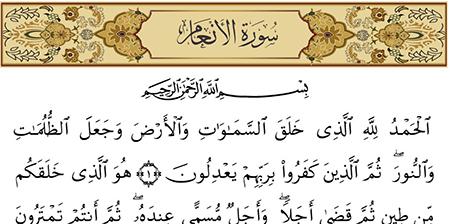 سُورَةُ الأَنْعَامِ
بِسْمِ اللَّهِ الرَّحْمَٰنِ الرَّحِيمِ
ٱلْحَمْدُ لِلَّهِ ٱلَّذِى خَلَقَ ٱلسَّمَٰوَٰتِ وَٱلْأَرْضَ وَجَعَلَ ٱلظُّلُمَٰتِ
وَٱلنُّورَ ۖ ثُمَّ ٱلَّذِينَ كَفَرُوا۟ بِرَبِّهِمْ يَعْدِلُونَ ﴿١﴾ هُوَ ٱلَّذِى خَلَقَكُم
مِّن طِينٍ ثُمَّ قَضَىٰٓ أَجَلًا ۖ وَأَجَلٌ مُّسَمًّى عِندَهُۥ ۖ ثُمَّ أَنتُمْ تَمْتَرُونَ